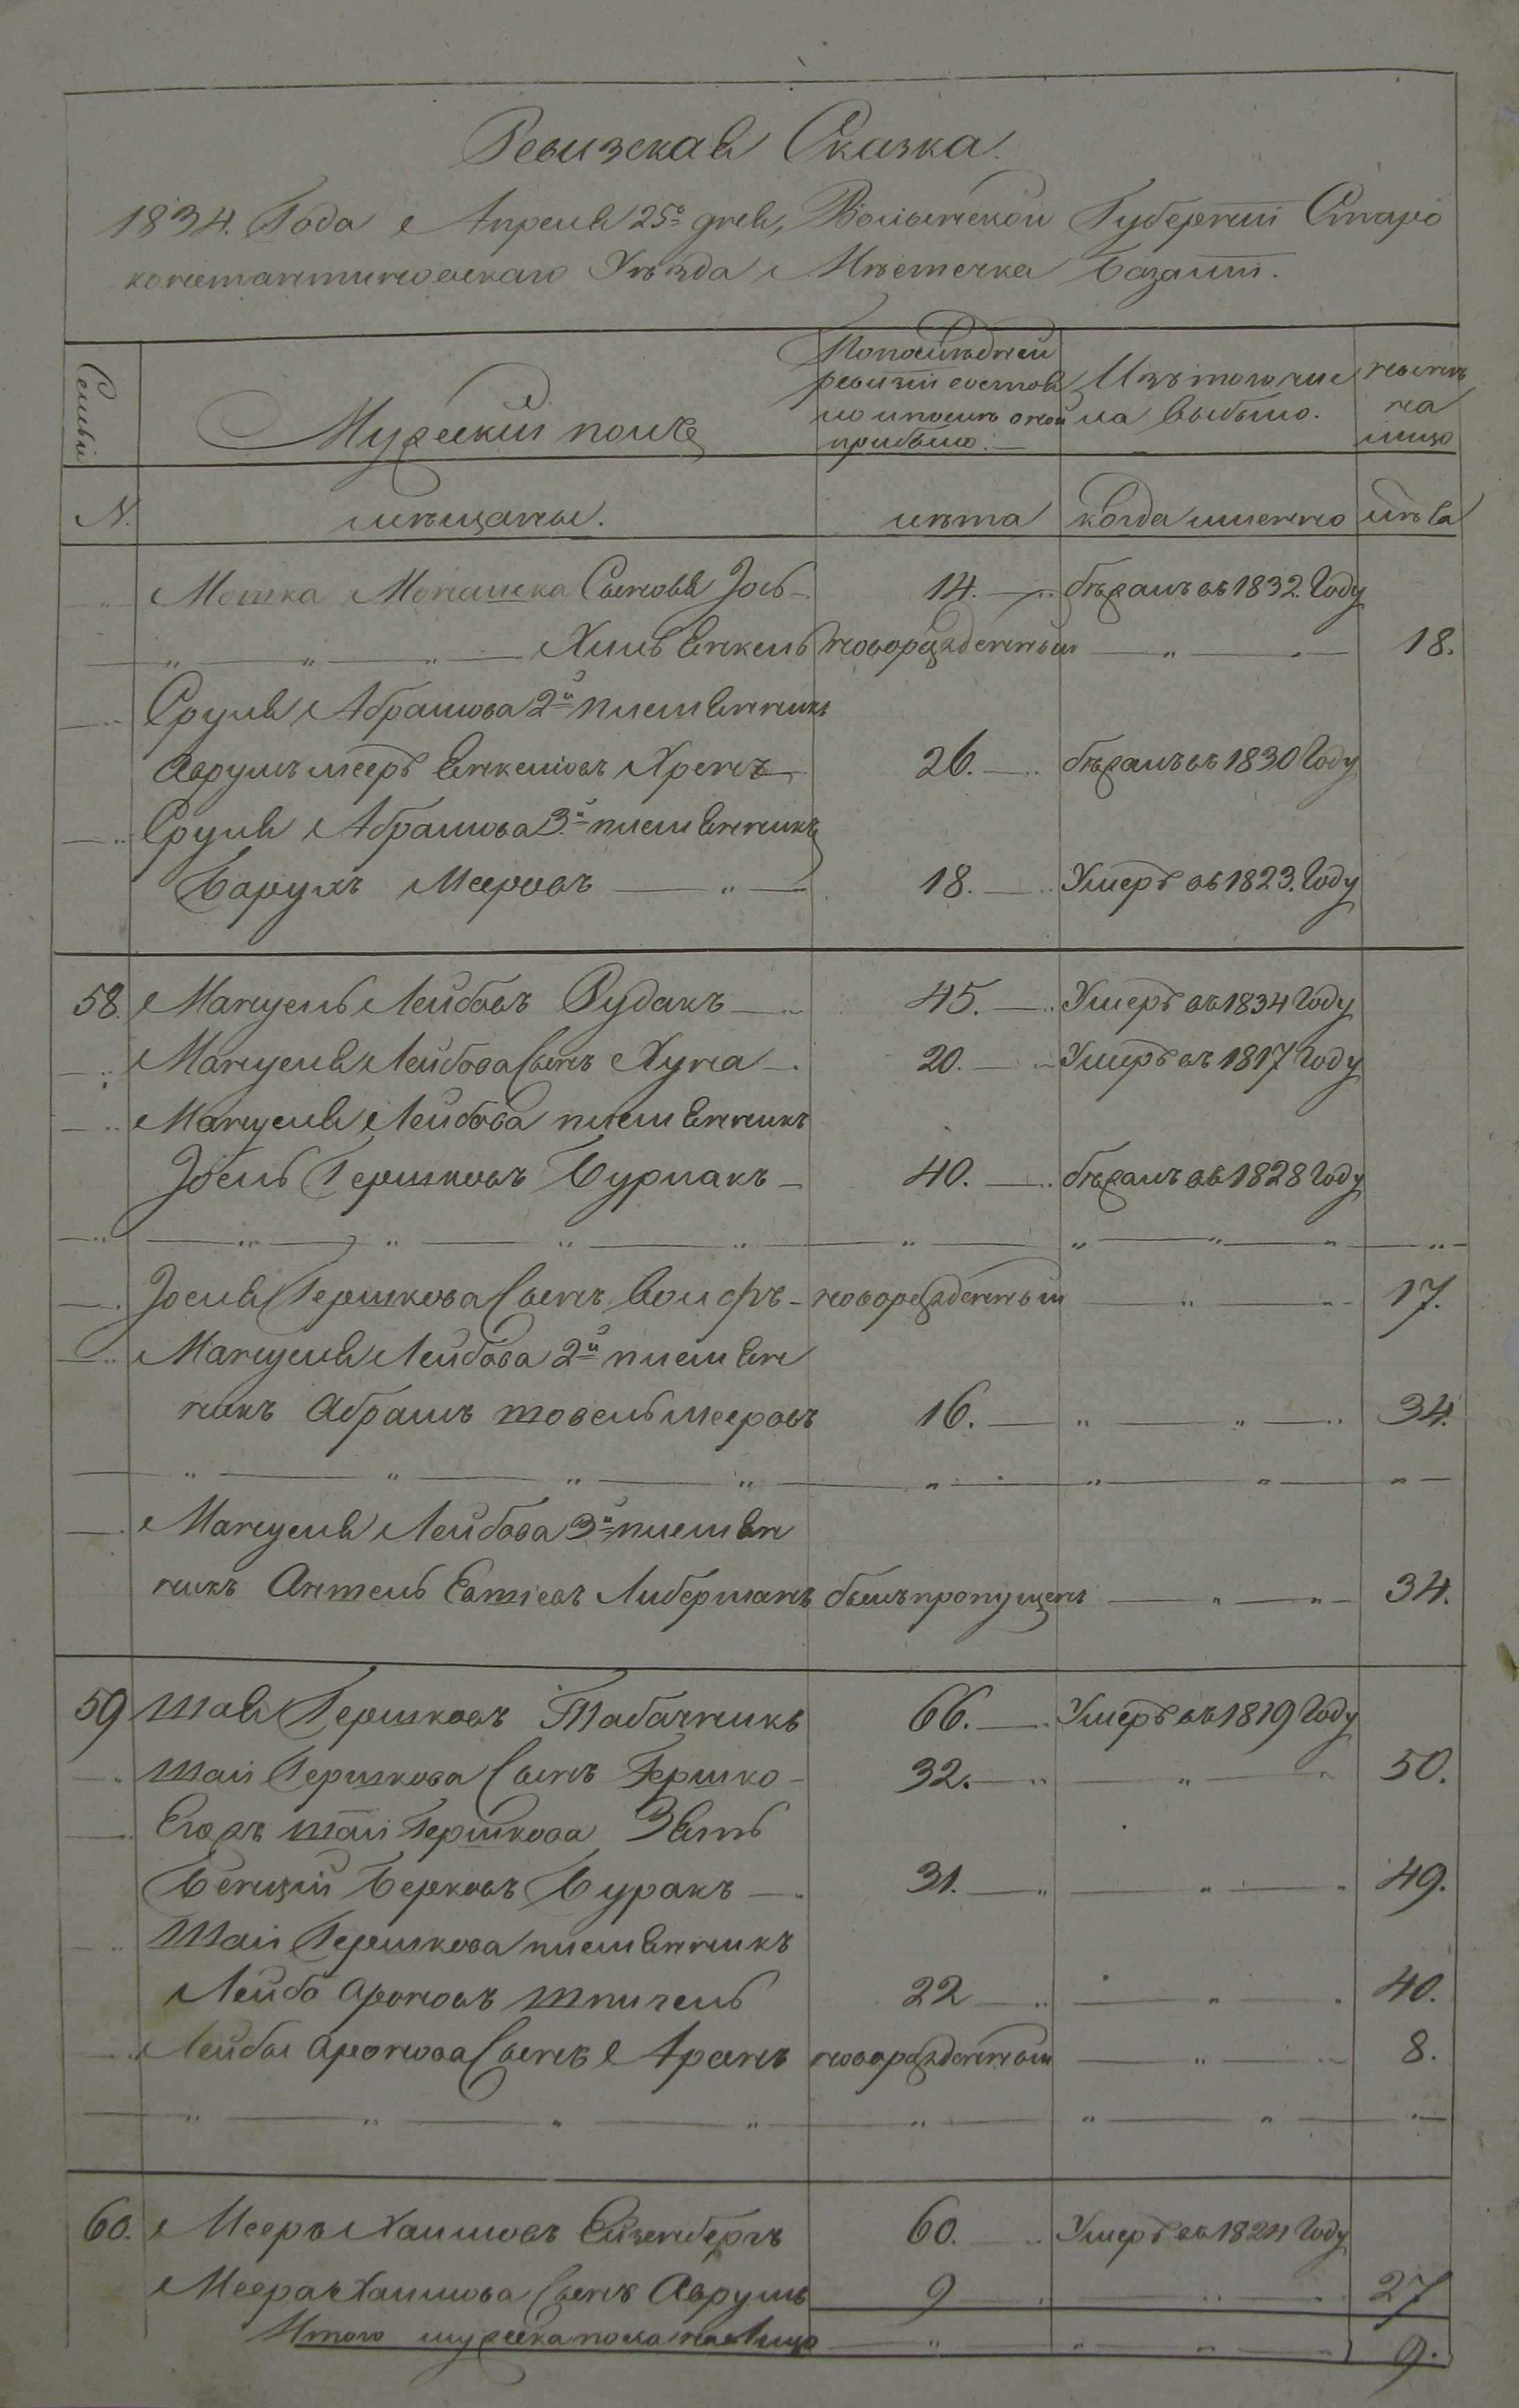 Ревизская Сказка.
1834. Года Апреля 25º дня, Волынской Губернии Старо
константиновскаго Уезда Местечка Базалии.
Семьи
Мужеский полъ
По последней ревизии состояло и после оной прибыло.
Изъ того числа выбыло.
ныне на лицо
N.
мещаны.
лета
когда именно
лета
" Мошка Мошка Сыновья Іось 14. бежалъ въ 1832. Году
" " " Хиль Янкель новорожденный " 18.
" Сруля Абрамова 2й племянникъ
Аврумъ мееръ Янкелiовъ Хренъ 26. бежалъ въ 1830 Году
" Сруля Абрамова 3й племянникъ
Барухъ Мееровъ " 18. Умеръ въ 1823. Году
58. Манусль Лейбовъ Рудакъ 45. Умеръ въ 1834 Году
" Мануеля Лейбова Сынъ Хуна 20. Умеръ въ 1817 Году
" Мануеля Лейбова племянникъ
Іосль Гершковъ Бурлакъ 40. бежалъ въ 1828 Году
" " " " " " " " " "
Іосля Гершкова Сынъ Волфъ новорожденный " " 17.
" Мануеля Лейбова 2й племян
никъ Абрамъ товель мееровъ 16. " " 34.
" " " " " " " "
Мануеля Лейбова 3й племян
никъ Антель Евтіевъ Либерманъ былъ пропущенъ " " 34.
59 Шая Гершковъ Табачникъ 66. Умеръ въ 1819 Году
" Шаи Гершкова Сынъ Гершко 32. " " 50.
Егожъ Шаи Гершкова Зять
Бенцій Берковъ Буракъ 31. " " 49.
" Шаи Гершкова племянникъ
Лейба Ароновъ Шпигель 22 " " 40.
Лейбы Аронова Сынъ Аронъ новорожденный " 8.
" " " " " " " "
60. Мееръ Хаимовъ Ейзенбергъ 60. Умеръ въ 1824 Году
Меера Хаимова Сынъ Аврумъ 9 " 27
Итого мужеска пола на Лицо " " " " 9.